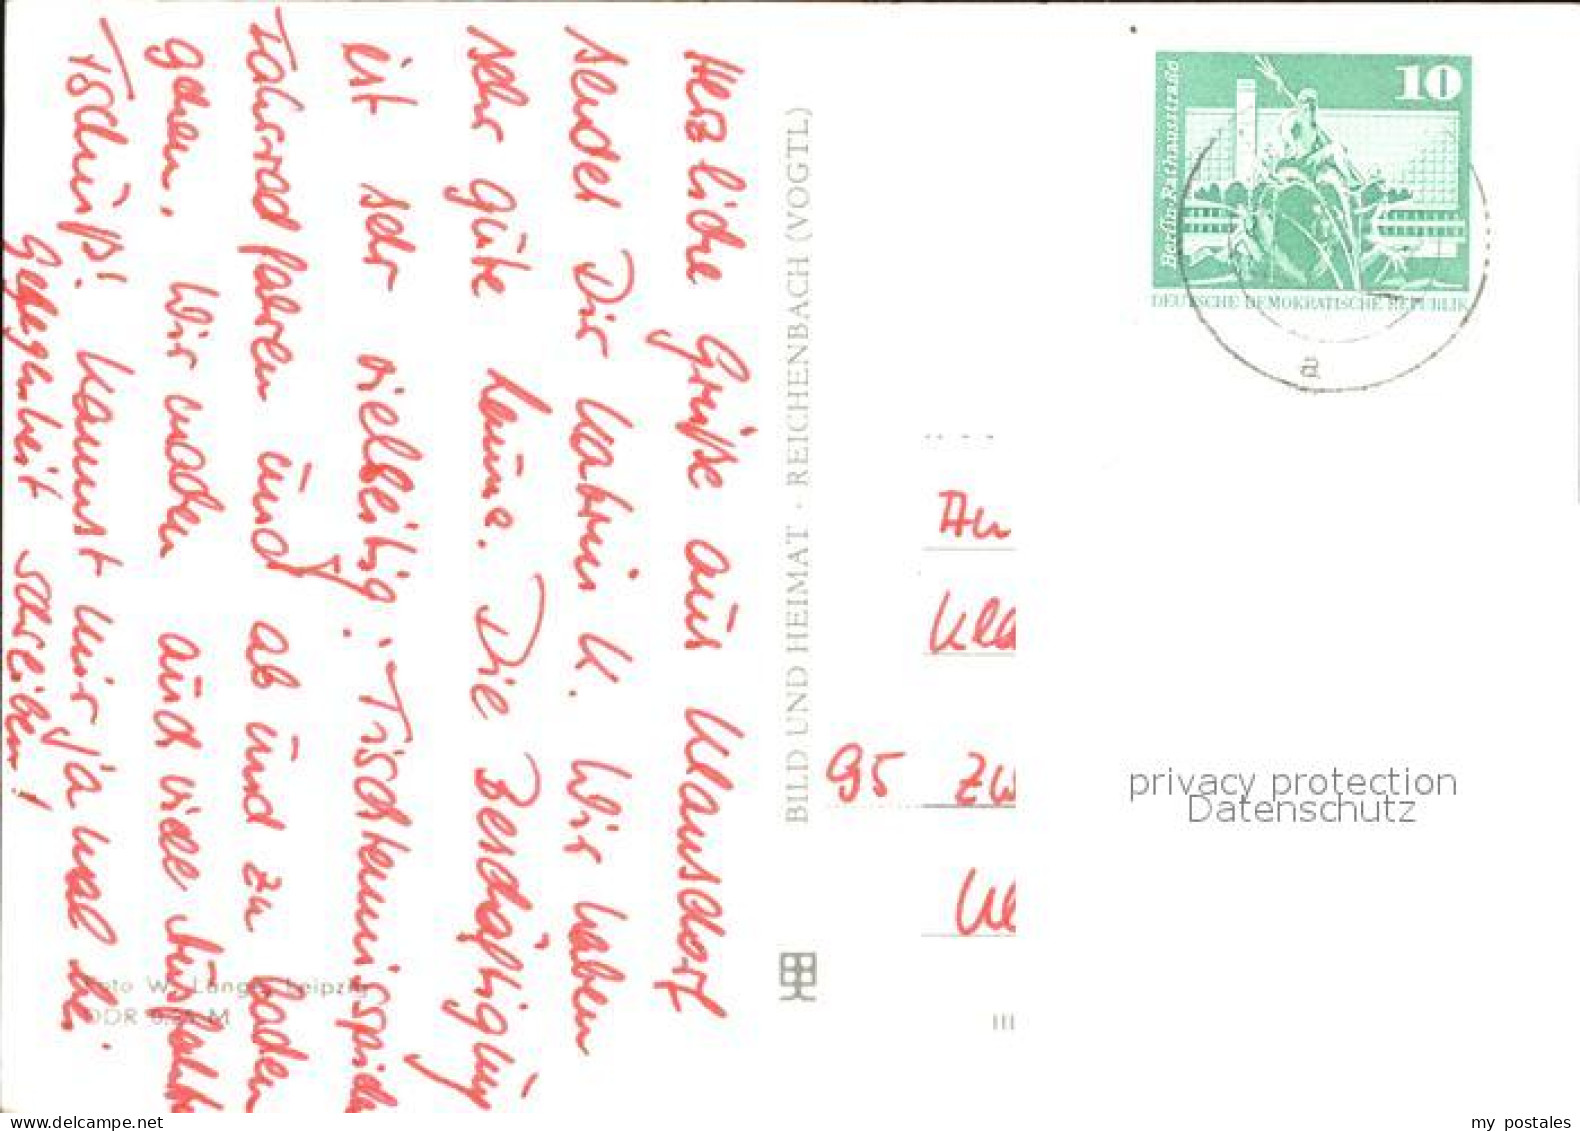 Herzliche Grüße aus Klausdorf
sendet Dir Katrin K. Wir haben
sehr gute Laune. Die Beschäftigung
ist sehr vielseitig. Tischtennisspielen
Fahrradfahren und ab und zu baden
gehen. Wir machen auch viele Ausfahrt
Tschüß! Kannst mir ja mal bei
Gelegenheit schreiben!
Foto W. Lange, Leipzig
DDR M
BILD UND HEIMAT · REICHENBACH (VOGTL)
10
Berlin-Rathausstraße
DEUTSCHE DEMOKRATISCHE REPUBLIK
a
An
Kla
95 Zw
III
privacy protection
Datenschutz
www.delcampe.net
my postales